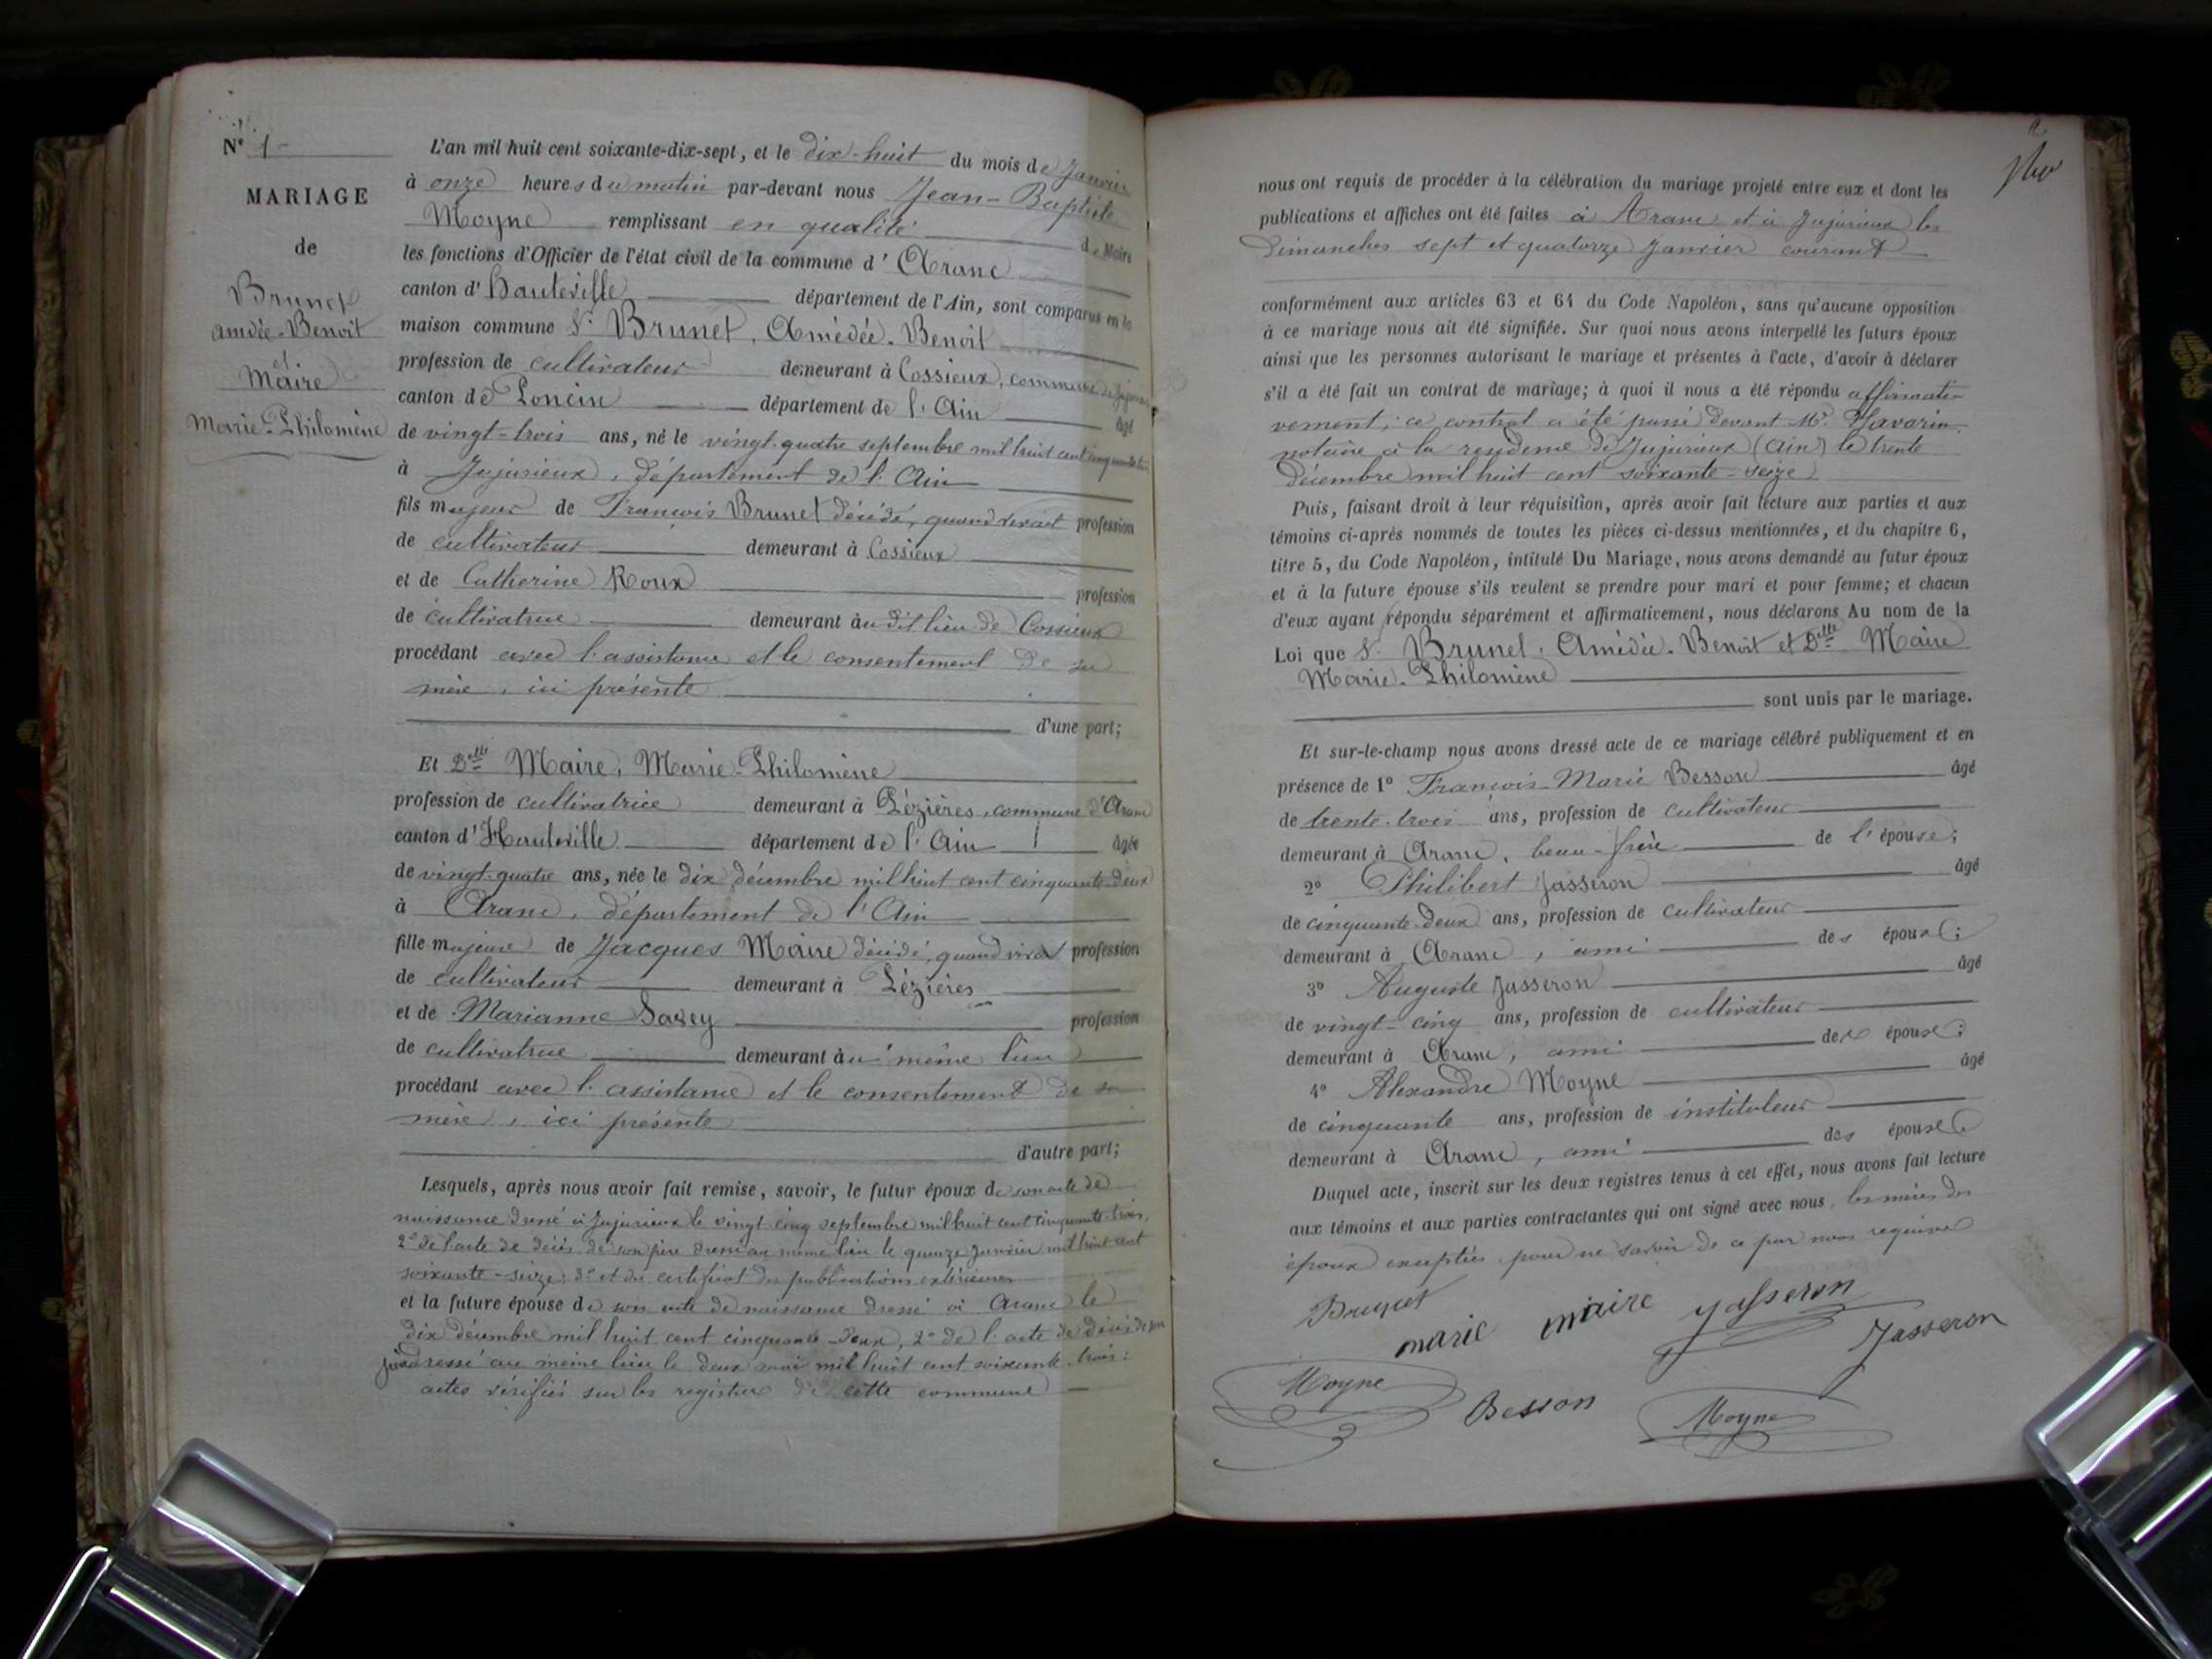 N° 1
MARIAGE
de
Brunet
Amédée-Benoit
et
Maire
Marie-Philomène
L'an mil huit cent soixante-dix-sept, et le dix-huit du mois de Janvier
à onze heures du matin par-devant nous Jean-Baptiste
Moyne remplissant en qualité de Maire
les fonctions d'Officier de l'état civil de la commune d'Aranc
canton d'Hauteville département de l'Ain, sont comparus en la
maison commune Sr Brunet, Amédée-Benoit
profession de cultivateur demeurant à Cossieux, commune de Jujurieux
canton de Poncin département de l'Ain âgé
de vingt-trois ans, né le vingt-quatre septembre mil huit cent cinquante-trois
à Jujurieux, département de l'Ain
fils majeur de François Brunet décédé, quand vivait profession
de cultivateur demeurant à Cossieux
et de Catherine Roux profession
de cultivatrice demeurant audit lieu de Cossieux
procédant avec l'assistance et le consentement de sa
mère, ici présente
d'une part;
Et Delle Maire, Marie-Philomène
profession de cultivatrice demeurant à Pézières, commune d'Aranc
canton d'Hauteville département de l'Ain âgée
de vingt-quatre ans, née le dix décembre mil huit cent cinquante-deux
à Aranc, département de l'Ain
fille majeure de Jacques Maire décédé, quand vivait profession
de cultivateur demeurant à Pézières
et de Marianne Savey profession
de cultivatrice demeurant au même lieu
procédant avec l'assistance et le consentement de sa
mère, ici présente
d'autre part;
Lesquels, après nous avoir fait remise, savoir, le futur époux de son acte de
naissance dressé à Jujurieux le vingt-cinq septembre mil huit cent cinquante-trois,
2° de l'acte de décès de son père dressé au même lieu le quinze Janvier mil huit cent
soixante-seize; 3° et du certificat des publications extérieures
et la future épouse de son acte de naissance dressé à Aranc le
dix décembre mil huit cent cinquante-deux, 2° de l'acte de décès de son
père dressé au même lieu le deux mai mil huit cent soixante-trois:
actes vérifiés sur les registres de cette commune
nous ont requis de procéder à la célébration du mariage projeté entre eux et dont les
publications et affiches ont été faites à Aranc et à Jujurieux les
Dimanches sept et quatorze Janvier courant
conformément aux articles 63 et 64 du Code Napoléon, sans qu'aucune opposition
à ce mariage nous ait été signifiée. Sur quoi nous avons interpellé les futurs époux
ainsi que les personnes autorisant le mariage et présentes à l'acte, d'avoir à déclarer
s'il a été fait un contrat de mariage; à quoi il nous a été répondu affirmati-
vement; ce contrat a été passé devant Me Savarin,
notaire à la résidence de Jujurieux (Ain) le trente
Décembre mil huit cent soixante-seize
Puis, faisant droit à leur réquisition, après avoir fait lecture aux parties et aux
témoins ci-après nommés de toutes les pièces ci-dessus mentionnées, et du chapitre 6,
titre 5, du Code Napoléon, intitulé Du Mariage, nous avons demandé au futur époux
et à la future épouse s'ils veulent se prendre pour mari et pour femme; et chacun
d'eux ayant répondu séparément et affirmativement, nous déclarons Au nom de la
Loi que Sr Brunet, Amédée-Benoit et Delle Maire
Marie-Philomène
sont unis par le mariage.
Et sur-le-champ nous avons dressé acte de ce mariage célébré publiquement et en
présence de 1° François-Marie Besson âgé
de trente-trois ans, profession de cultivateur
demeurant à Aranc, beau-frère de l'épouse;
2° Philibert Jasseron âgé
de cinquante-deux ans, profession de cultivateur
demeurant à Aranc, ami des époux;
3° Auguste Jasseron âgé
de vingt-cinq ans, profession de cultivateur
demeurant à Aranc, ami des époux;
4° Alexandre Moyne âgé
de cinquante ans, profession de instituteur
demeurant à Aranc, ami des époux
Duquel acte, inscrit sur les deux registres tenus à cet effet, nous avons fait lecture
aux témoins et aux parties contractantes qui ont signé avec nous, les mères des
époux exceptées pour ne savoir de ce par nous requises
Brunet
marie maire Jasseron
Jasseron
Moyne
Besson
Moyne